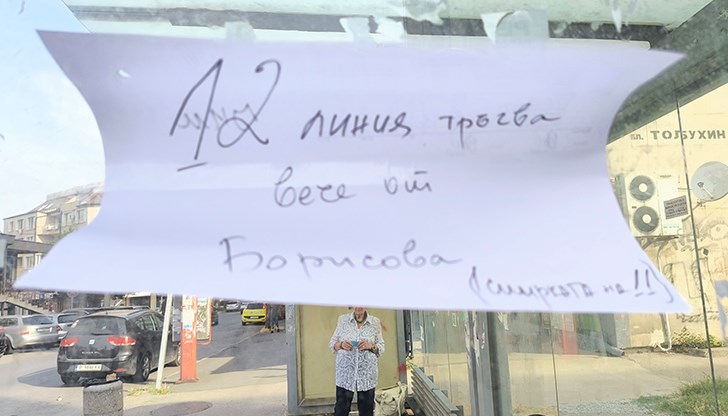 12 линия тръгва
вече от
Борисова
(спирката на 11)
пл. ТОЛБУХИН